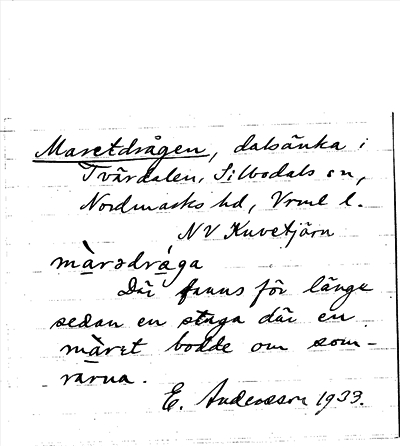 Maretdrågen, dalsänka i
Tvärdalen, Silbodals sn,
Nordmarks hd, Vrml l.
NV Kuvetjärn
màrədrå̀ga
Där fanns för länge
sedan en stuga där en
màret bodde om som-
rarna.
E. Andersson 1933.